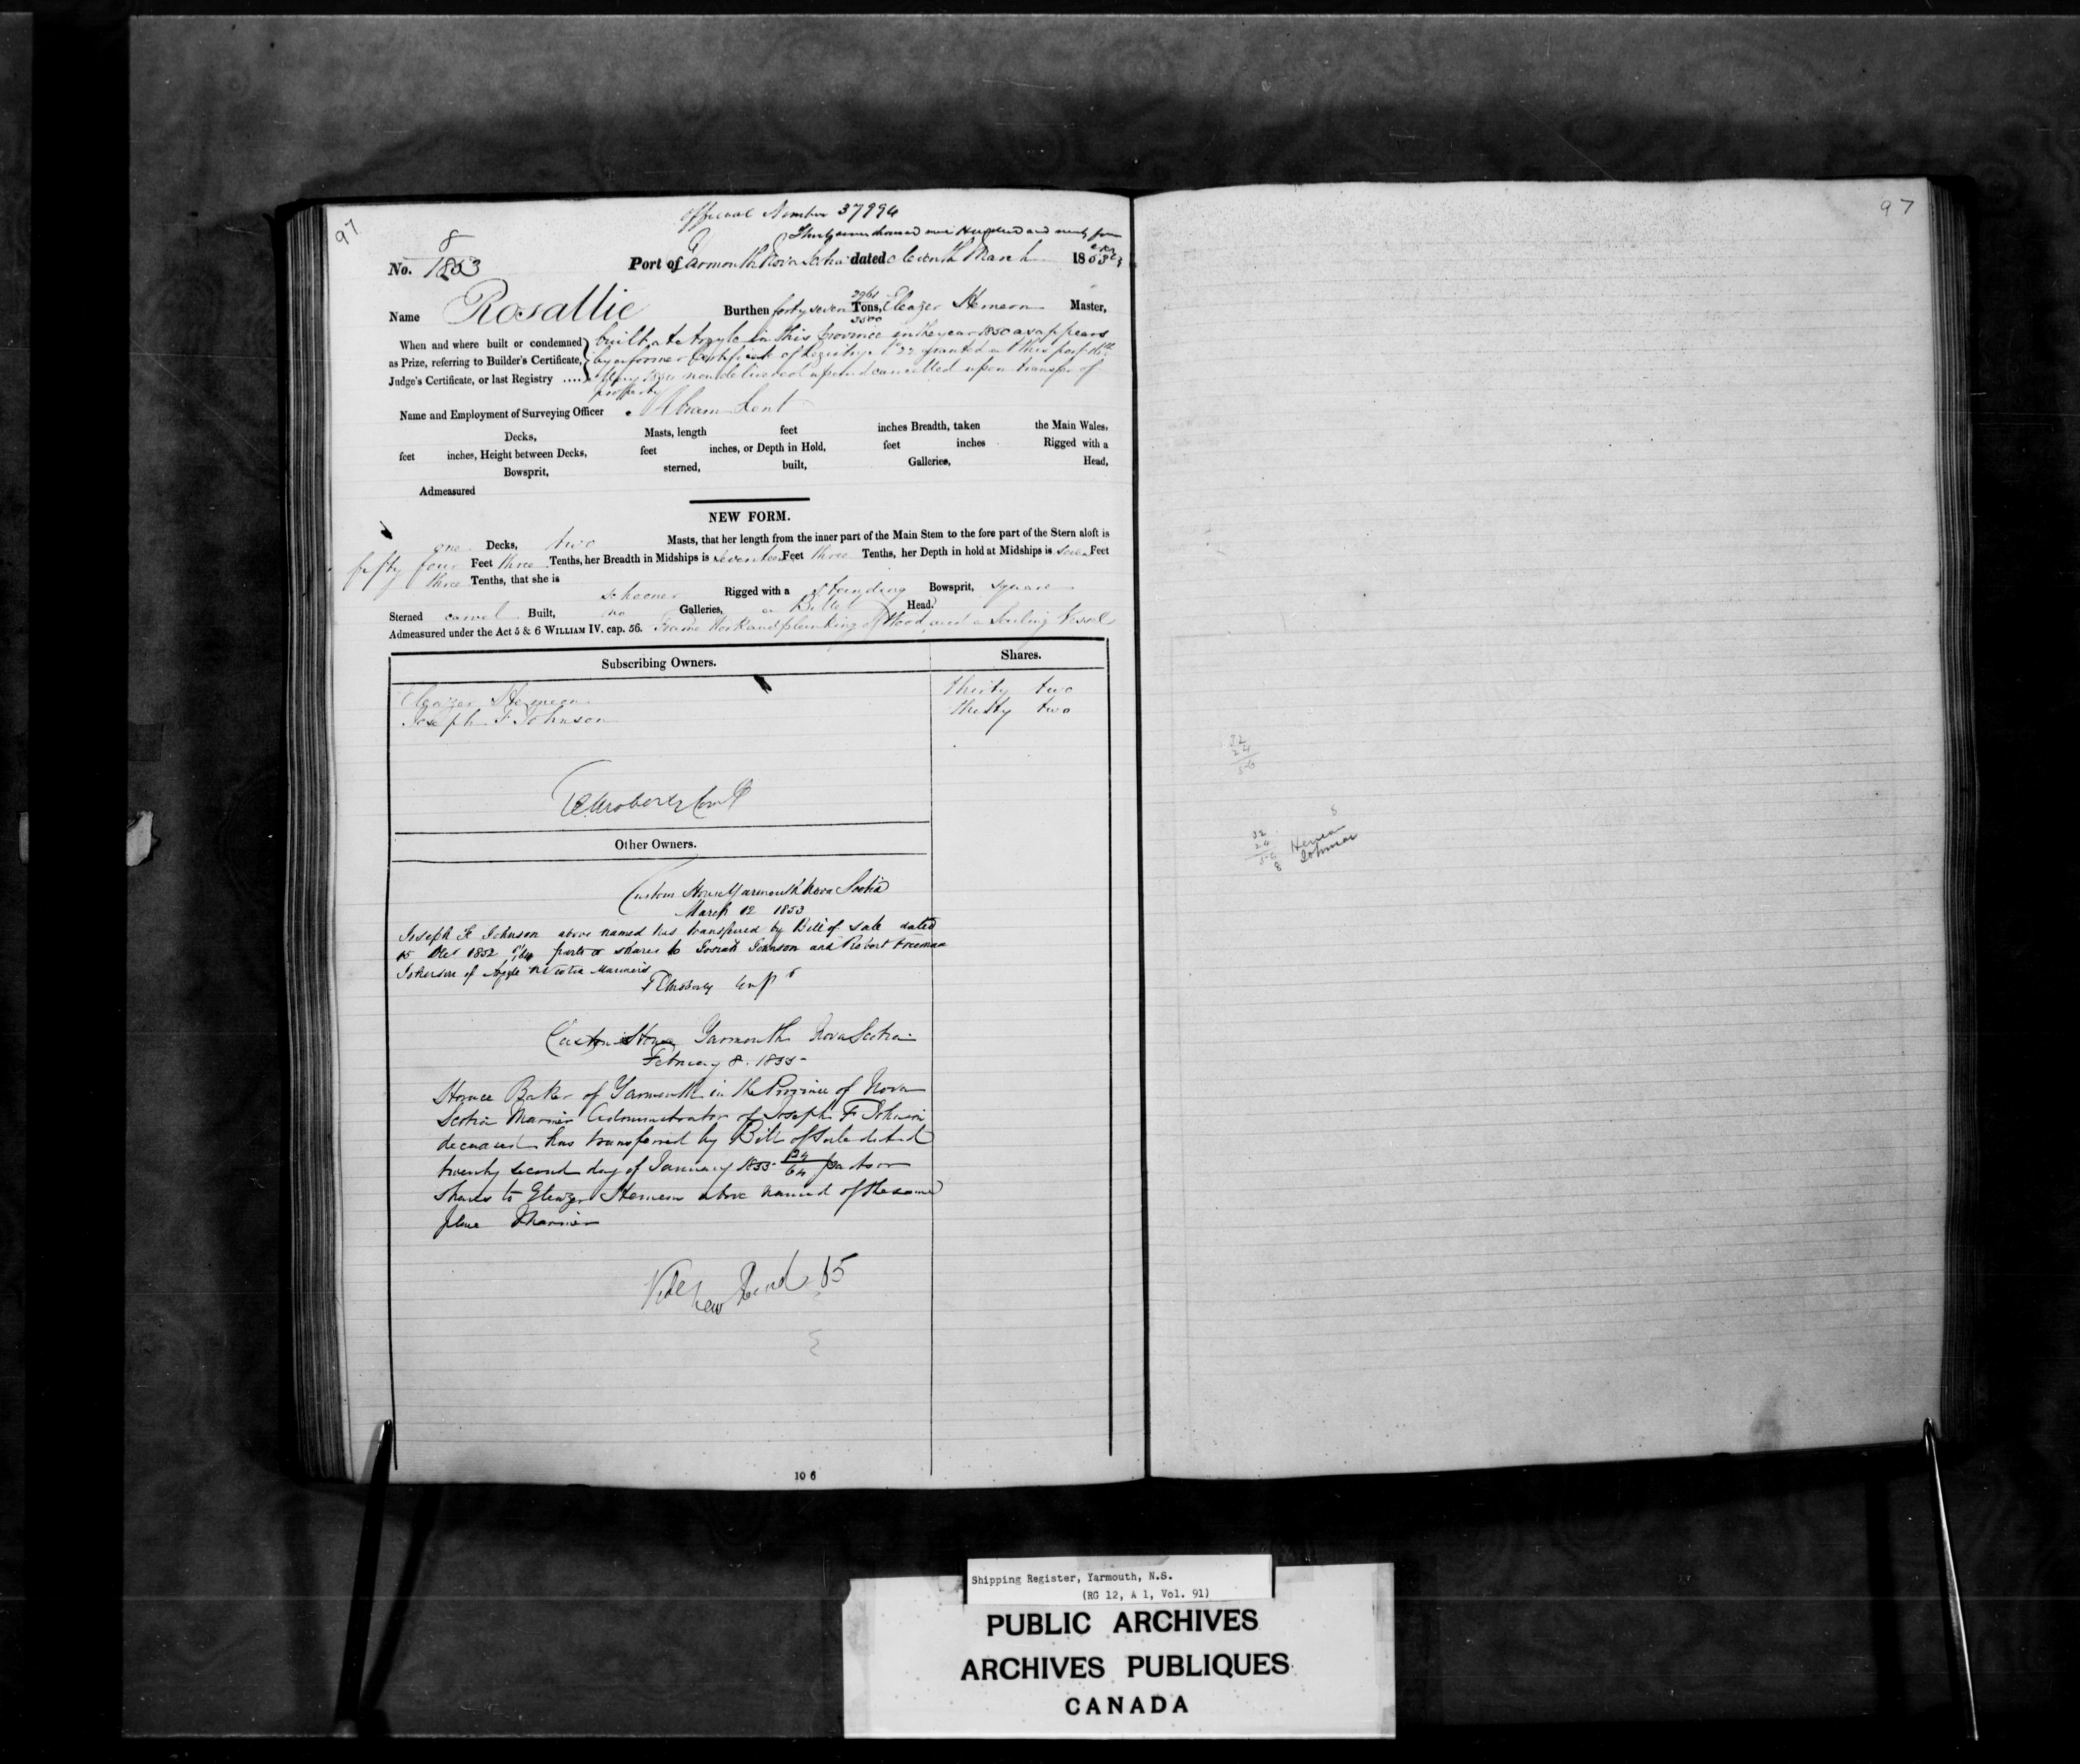 97
Official Number 37994
Thirty seven thousand nine Hundred and ninety four
No. 8/1853 Port of Yarmouth Nova Scotia dated eleventh March 1853
Name Rosallie Burthen forty seven 2961/3500 Tons, Eleazer Hemeon Master,
When and where built or condemned as Prize, referring to Builder's Certificate, Judge's Certificate, or last Registry .....
built at Argyle in this Province in the year 1850 as appears
by a former Certificate of Registry No 22 granted at this port
May 1850 now delivered up and cancelled upon transfer of
property
Name and Employment of Surveying Officer Abram Lent
Decks, Masts, length feet inches Breadth, taken the Main Wales,
feet inches, Height between Decks, feet inches, or Depth in Hold, feet inches Rigged with a
Bowsprit, sterned, built, Galleries, Head,
Admeasured
NEW FORM.
one Decks, two Masts, that her length from the inner part of the Main Stem to the fore part of the Stern aloft is
fifty four Feet three Tenths, her Breadth in Midships is seventeen Feet three Tenths, her Depth in hold at Midships is seven Feet
three Tenths, that she is
schooner Rigged with a standing Bowsprit, square
Sterned carvel Built, no Galleries, a Billet Head.
Admeasured under the Act 5 & 6 WILLIAM IV. cap. 56. Frame Work and planking of Wood, and a Sailing Vessel
Subscribing Owners. Shares.
Eleazer Hemeon thirty two
Joseph F Johnson thirty two
Other Owners.
Custom House Yarmouth Nova Scotia
March 12 1853
Joseph F Johnson above named has transfered by Bill of Sale dated
15 Dec 1852 parts or shares to Josiah Johnson and Robert Freeman
Johnson of Argyle N Scotia Mariners
Custom House Yarmouth Nova Scotia
February 8. 1855
Horace Baker of Yarmouth in the Province of Nova
Scotia Mariner Administrator of Joseph F Johnson
deceased has transferred by Bill of Sale dated
twenty second day of January 1855 24/64 parts or
shares to Eleazer Hemeon above named of the same
place Mariner
Vide New 65
10 6
97
32
24
56
32
24
56
8
8
Hemeon
Johnson
Shipping Register, Yarmouth, N.S.
(RG 12, A 1, Vol. 91)
PUBLIC ARCHIVES
ARCHIVES PUBLIQUES
CANADA